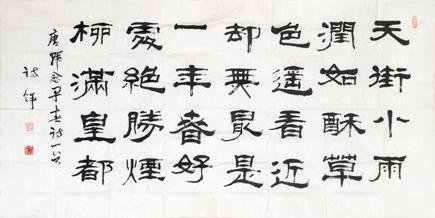 天街小雨
潤如酥草
色遥看近
却無最是
一年春好
處絕勝煙
柳滿皇都
唐韓愈早春詩一首